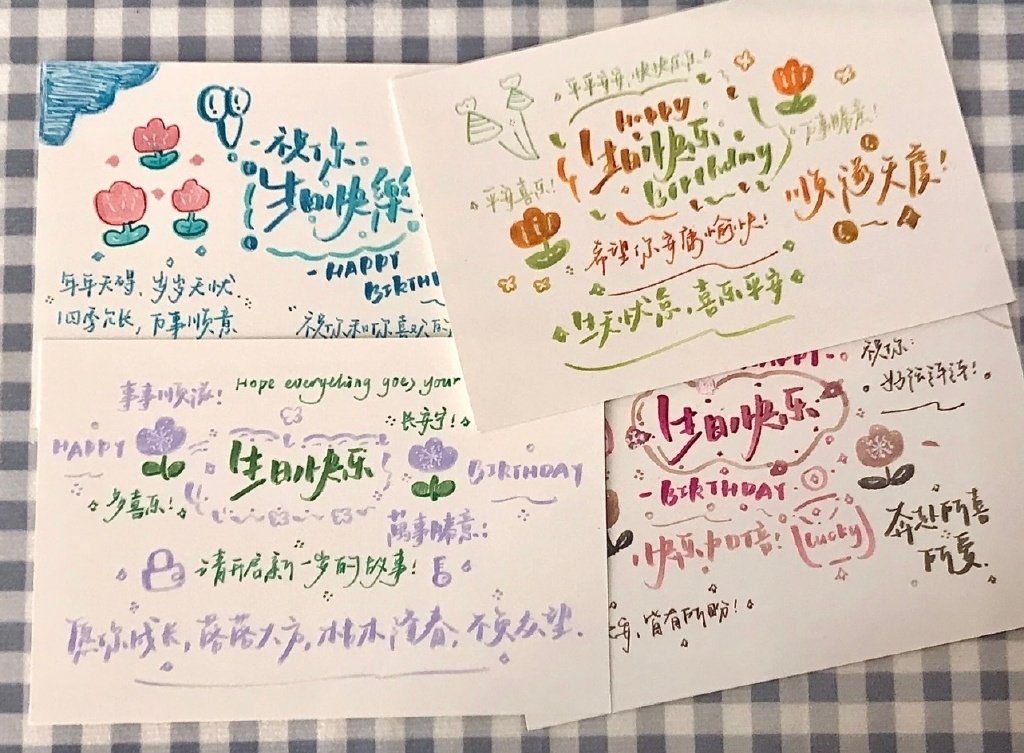 祝你
生日快樂
HAPPY
BIRTH
年年无碍,岁岁无忧
四季冗长,万事顺意
祝你和你喜欢的
年年安安,快快乐乐
Happy
生日快乐
Birthday
万事胜意!
平安喜乐!
顺遂无虞!
希望你幸福愉快!
生无忧怠,喜乐平安
事事顺遂!
Hope everything goes your
长安宁!
HAPPY
生日快乐
BIRTHDAY
多喜乐!
萬事勝意!
请开启新一岁的故事!
愿你成长,落落大方,枯木逢春,不负众望.
HAPPY
祝你:
好运连连!
生日快乐
BIRTHDAY
快乐加倍!
lucky
奔赴所喜
所爱.
皆有所盼!